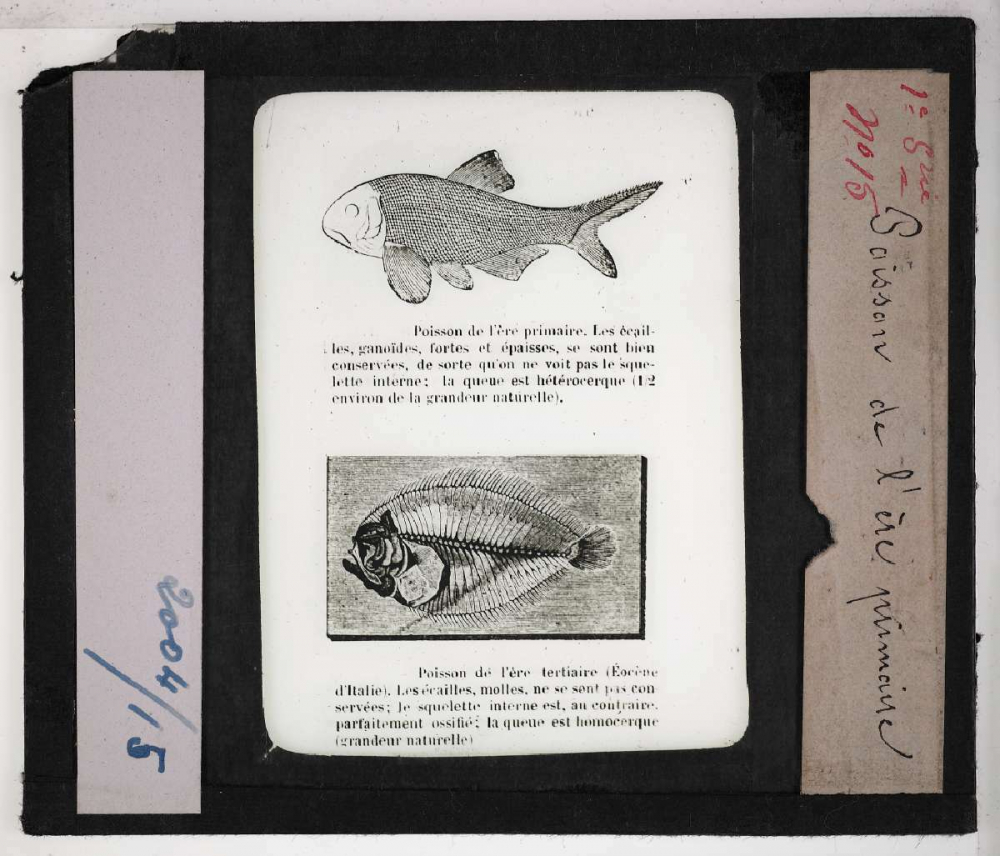 Poisson de l'ère primaire. Les écail-
les, ganoïdes, fortes et épaisses, se sont bien
conservées, de sorte qu'on ne voit pas le sque-
lette interne; la queue est hétérocerque (1/2
environ de la grandeur naturelle).
Poisson de l'ère tertiaire (Éocène
d'Italie). Les écailles, molles, ne se sont pas con
servées; le squelette interne est, au contraire,
parfaitement ossifié; la queue est homocerque
(grandeur naturelle)
2004/15
No 15
Poisson de l'ère primaire